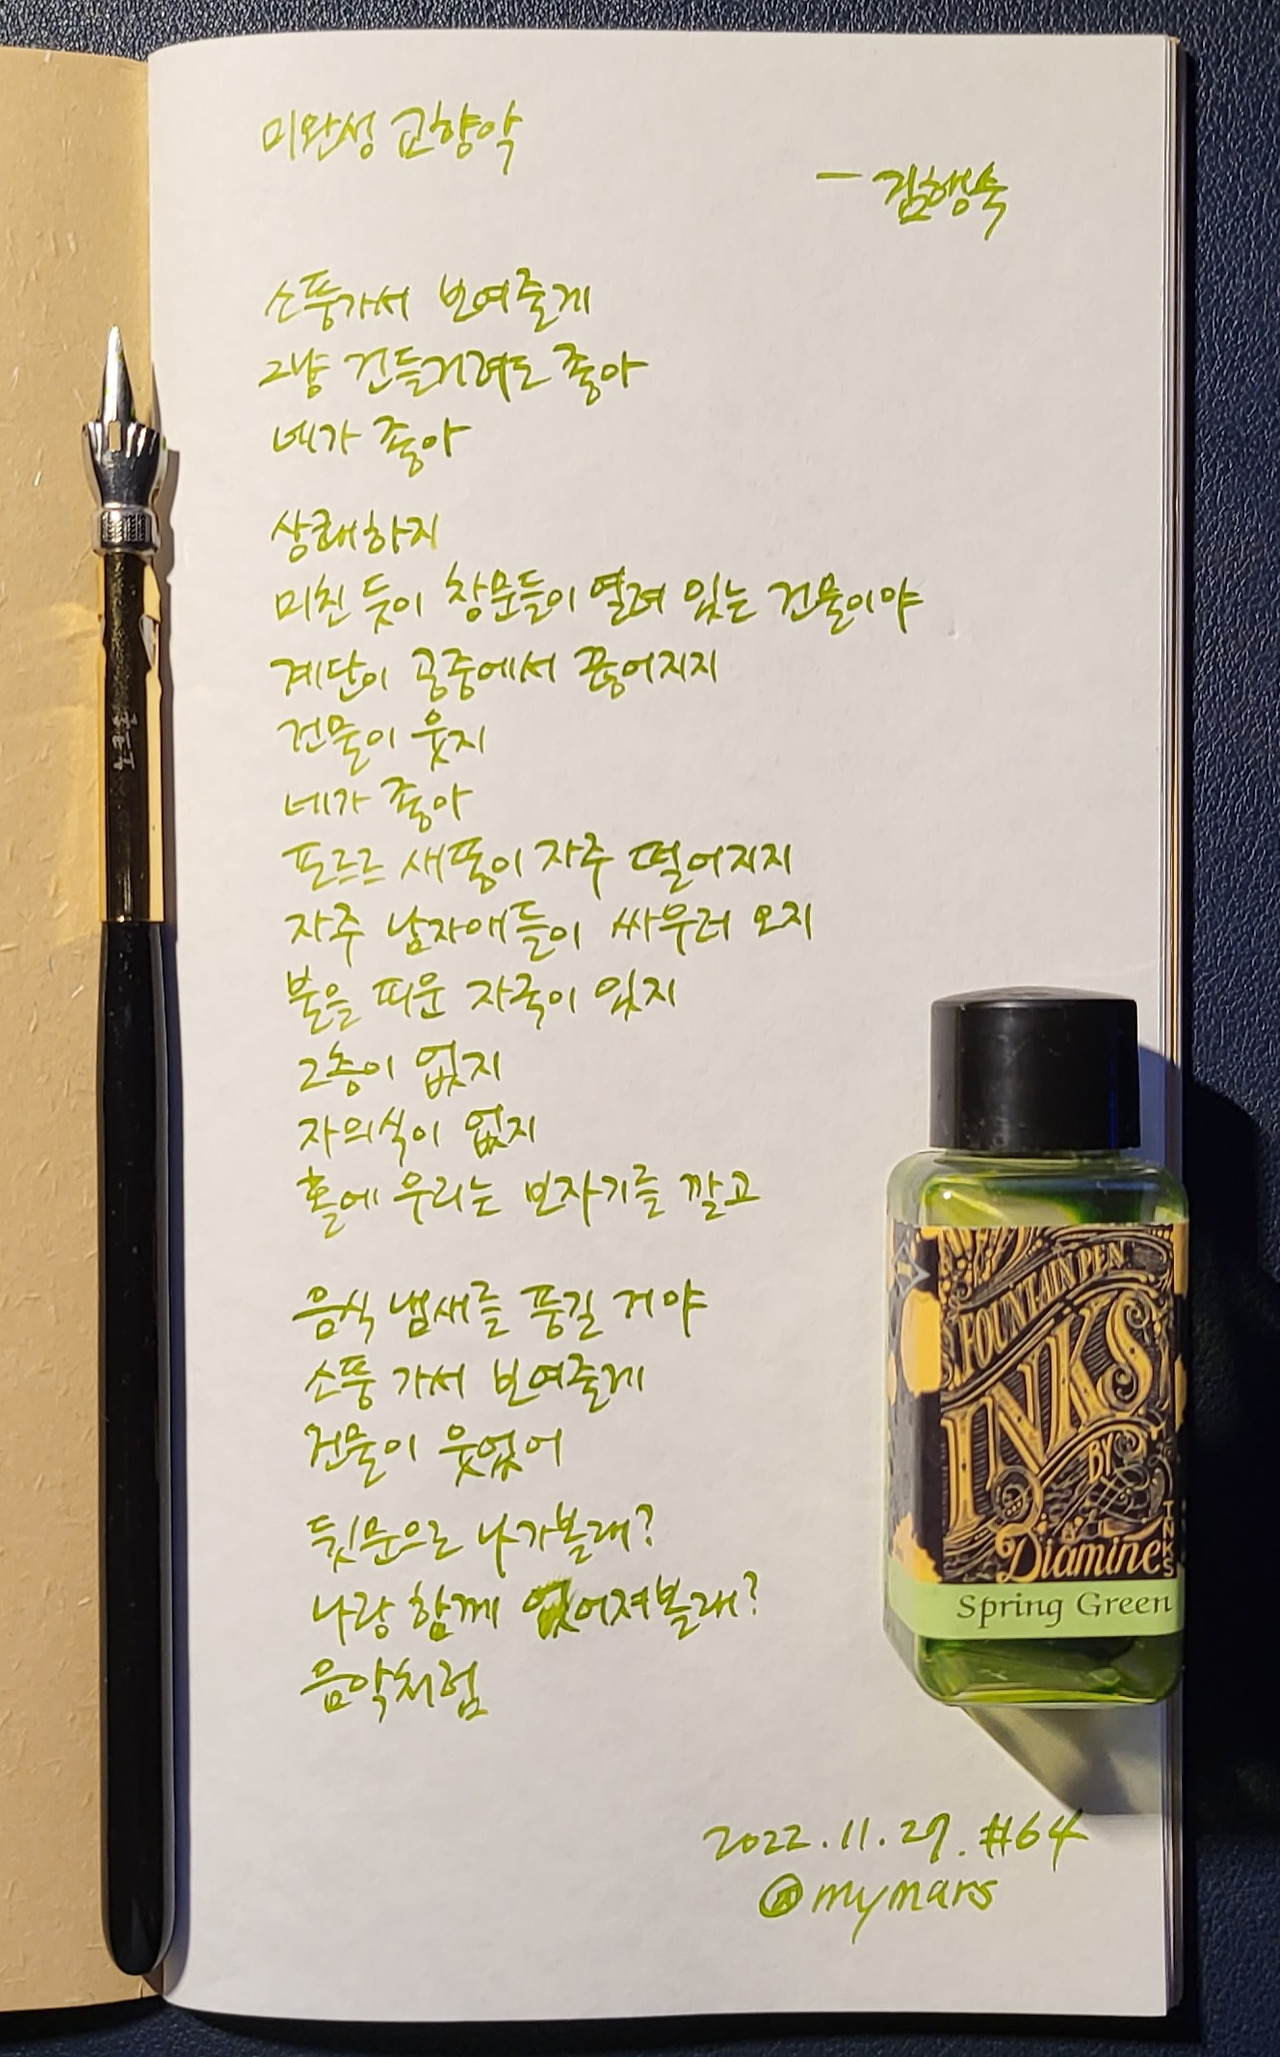 미완성 교향악
- 김행숙
소풍가서 보여줄게
그냥 건들거려도 좋아
네가 좋아
상쾌하지
미친 듯이 창문들이 열려 있는 건물이야
계단이 공중에서 끊어지지
건물이 웃지
네가 좋아
포르르 새똥이 자주 떨어지지
자주 남자애들이 싸우러 오지
불을 피운 자국이 있지
2층이 없지
자의식이 없지
홀에 우리는 보자기를 깔고
음식 냄새를 풍길 거야
소풍 가서 보여줄게
건물이 웃었어
뒷문으로 나가볼래?
나랑 함께 없어져볼래?
음악처럼
2022.11.27. #64
@mymars
FOUNTAIN PEN
INKS
BY
Diamine
INKS
Spring Green